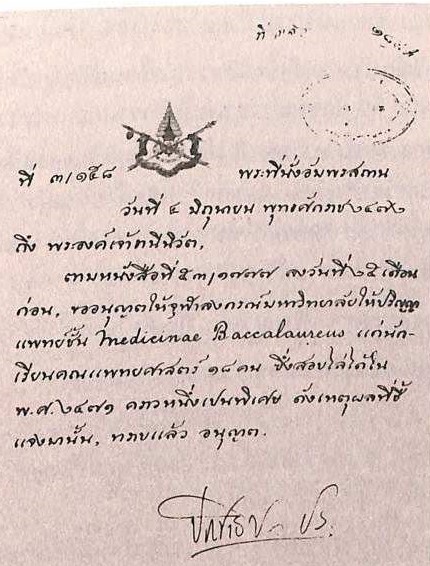 ที่
ที่ ๓/๑๕๘ พระที่นั่งอัมพรสถาน
วันที่ ๔ มิถุนายน พุทธศักราช ๒๔๗๒
ถึง พระองค์เจ้าธานีนิวัต,
ตามหนังสือที่ ๕๓/๑๗๗๗ ลงวันที่ ๒๕ เดือน
ก่อน, ขออนุญาตให้จุฬาลงกรณ์มหาวิทยาลัยให้ปริญญา
แพทย์ชั้น Medicinae Baccalaureus แก่นัก-
เรียนคณะแพทยศาสตร์ ๑๘ คน ซึ่งสอบไล่ได้ใน
พ.ศ. ๒๔๗๑ คราวหนึ่งเปนพิเศษ ดังเหตุผลที่ชี้
แจงมานั้น, ทราบแล้ว อนุญาต.
ปร.